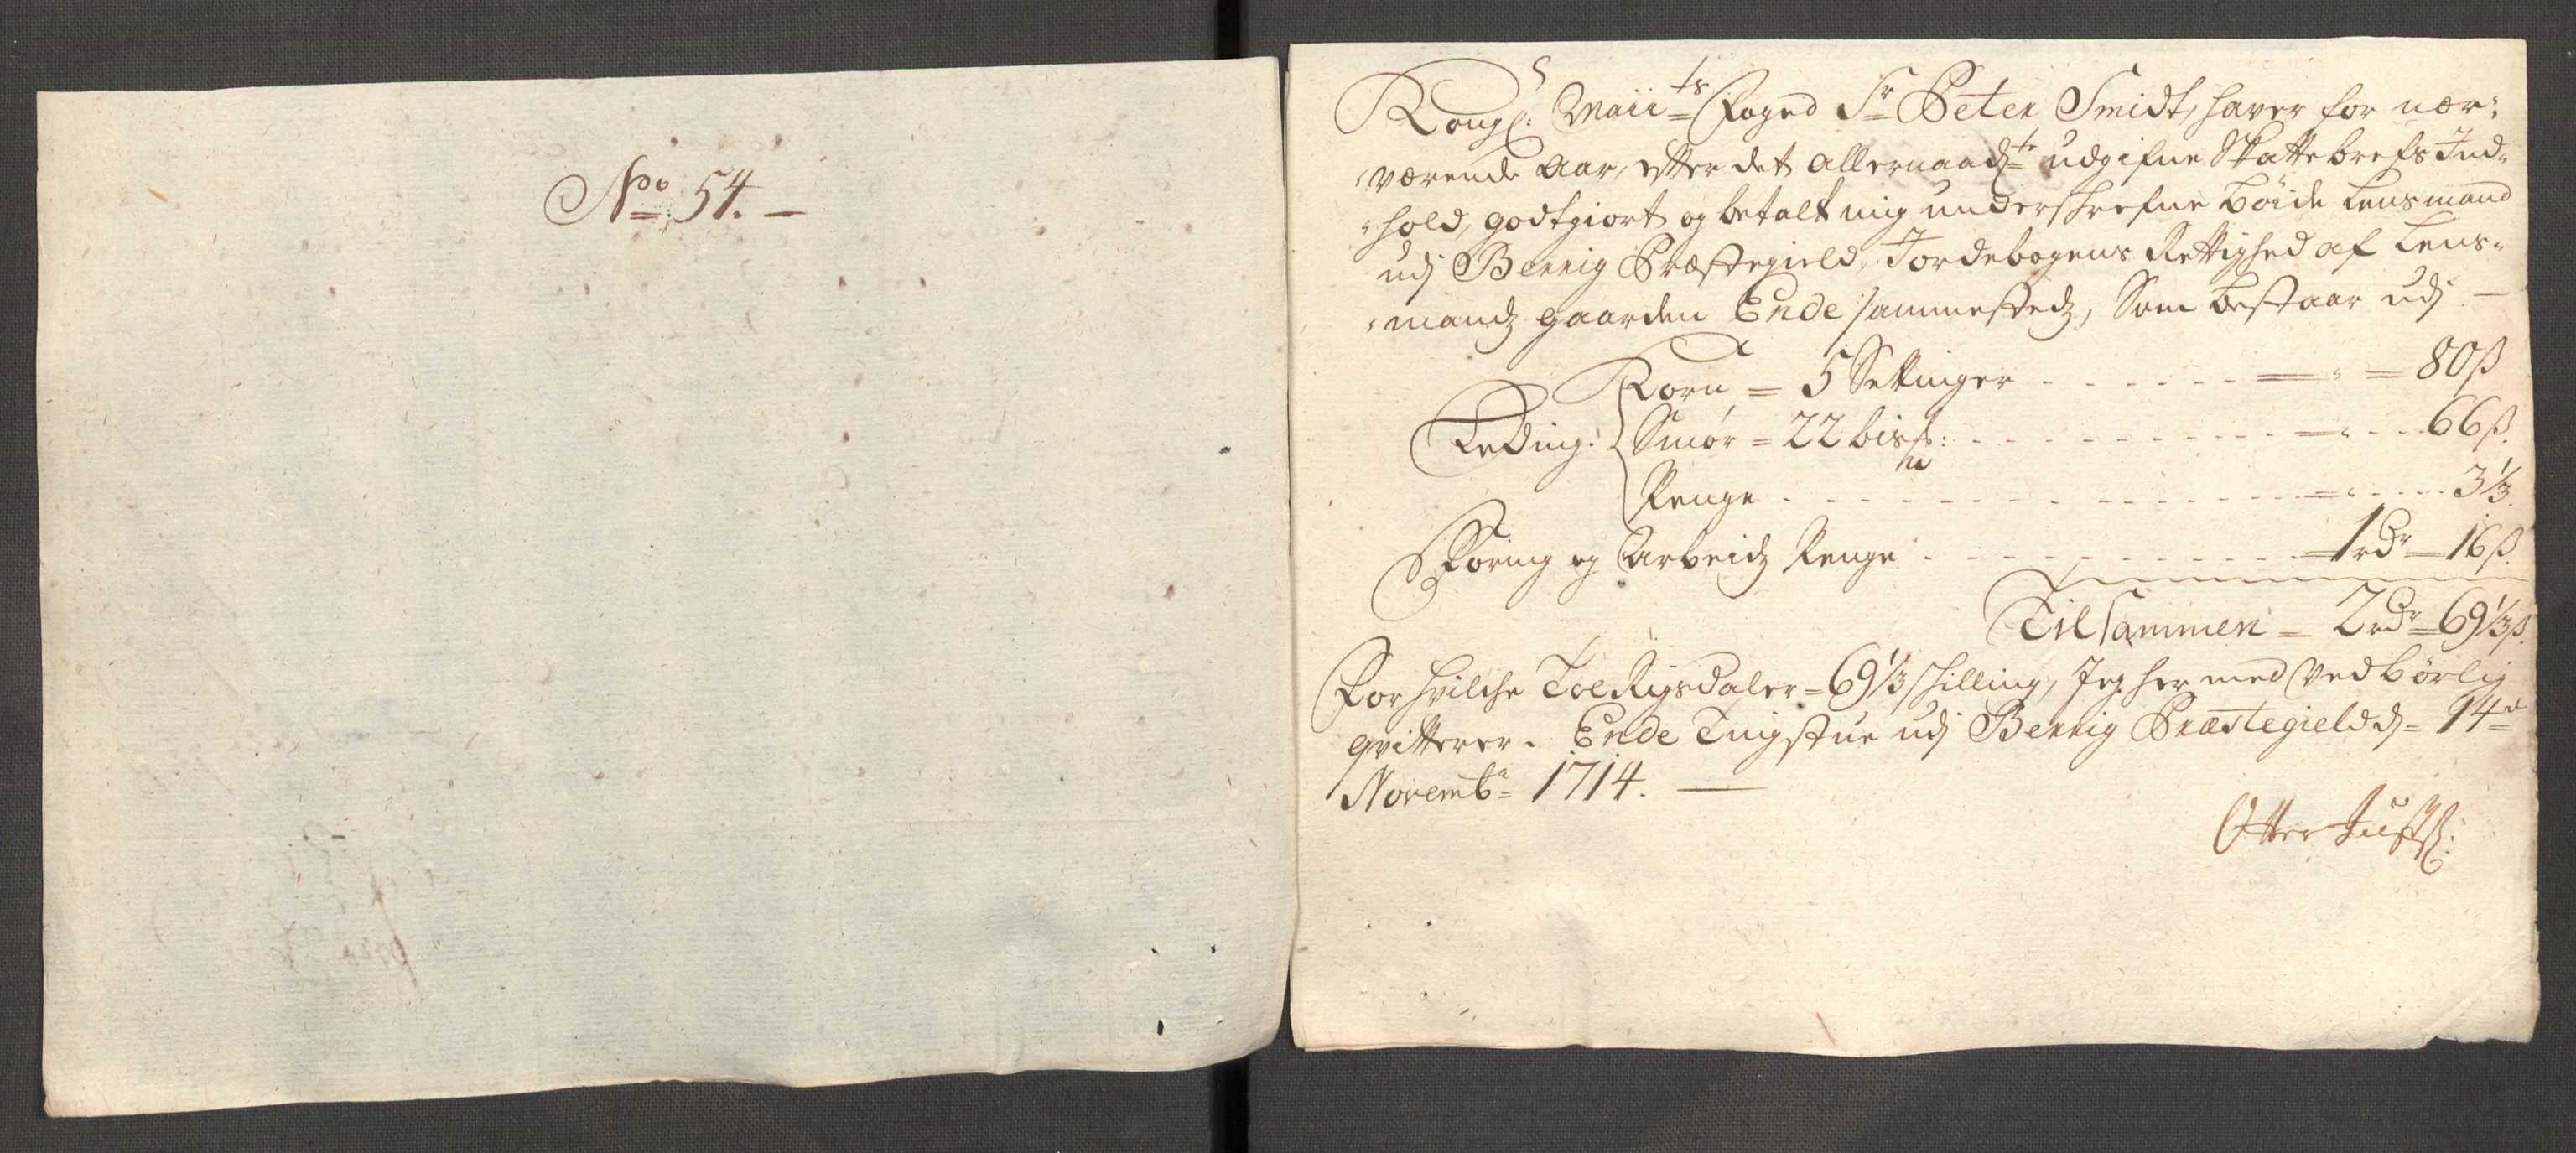 No: 54. –
Kongl: Maiits Foged Sr Peter Smidt, haver for nær-
værende Aar, efter det allernaadste udgifne Skattebrefs Ind-
hold, godtgiort og betalt mig underschrefne Böide Lensmand
udj Bervig Præstegield, Jordebogens Rettighed af Lens-
mandz gaarden Ende sammestedz, Som bestaar udj –
Korn = 5 Settinger = 80 ß
Leding: Smör = 22 = 66 ß.
Penge = 3 1/3.
Foring og Arbeidz Penge 1 rdr 16 ß.
Tilsammen = 2 rdr = 69 1/3 ß.
For hvilche Toe Rigsdaler = 69 1/3 schilling, Jeg her med ved börlig
qvitterer. Ende Tingstue udj Bervig Præstegield d = 14de
Novembr = 1714. –
Otter